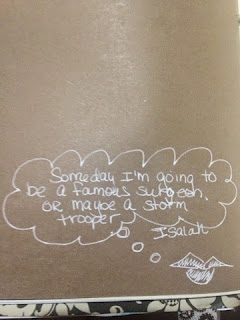 Someday I'm going to
be a famous surgeon.
OR maybe a storm
trooper
Isaiah